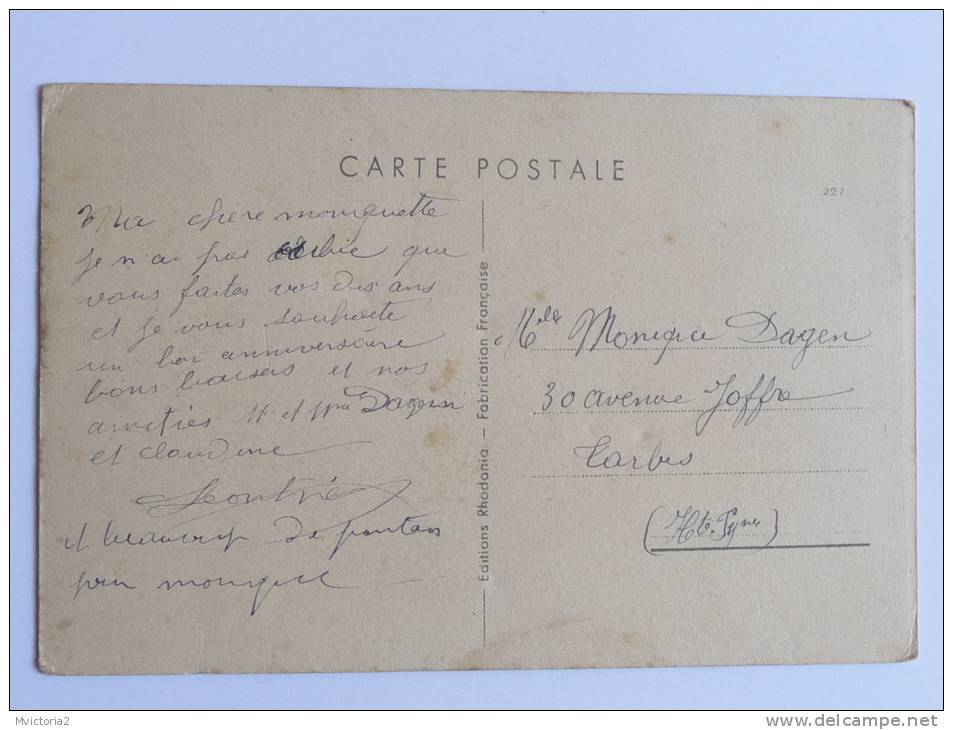 CARTE POSTALE
227
Ma chère moniquette
je n'ai pas oublié que
vous faites vos dix ans
et je vous souhaite
un bon anniversaire
bons baisers et nos
amitiés Mr et Mme Dagen
et claudine
et beaucoup de
pour monique
Editions Rhodania - Fabrication Française
Mlle Monique Dagen
30 avenue Joffre
Tarbes
(Htes Pynes)
Mvictoria2
delcampe.net